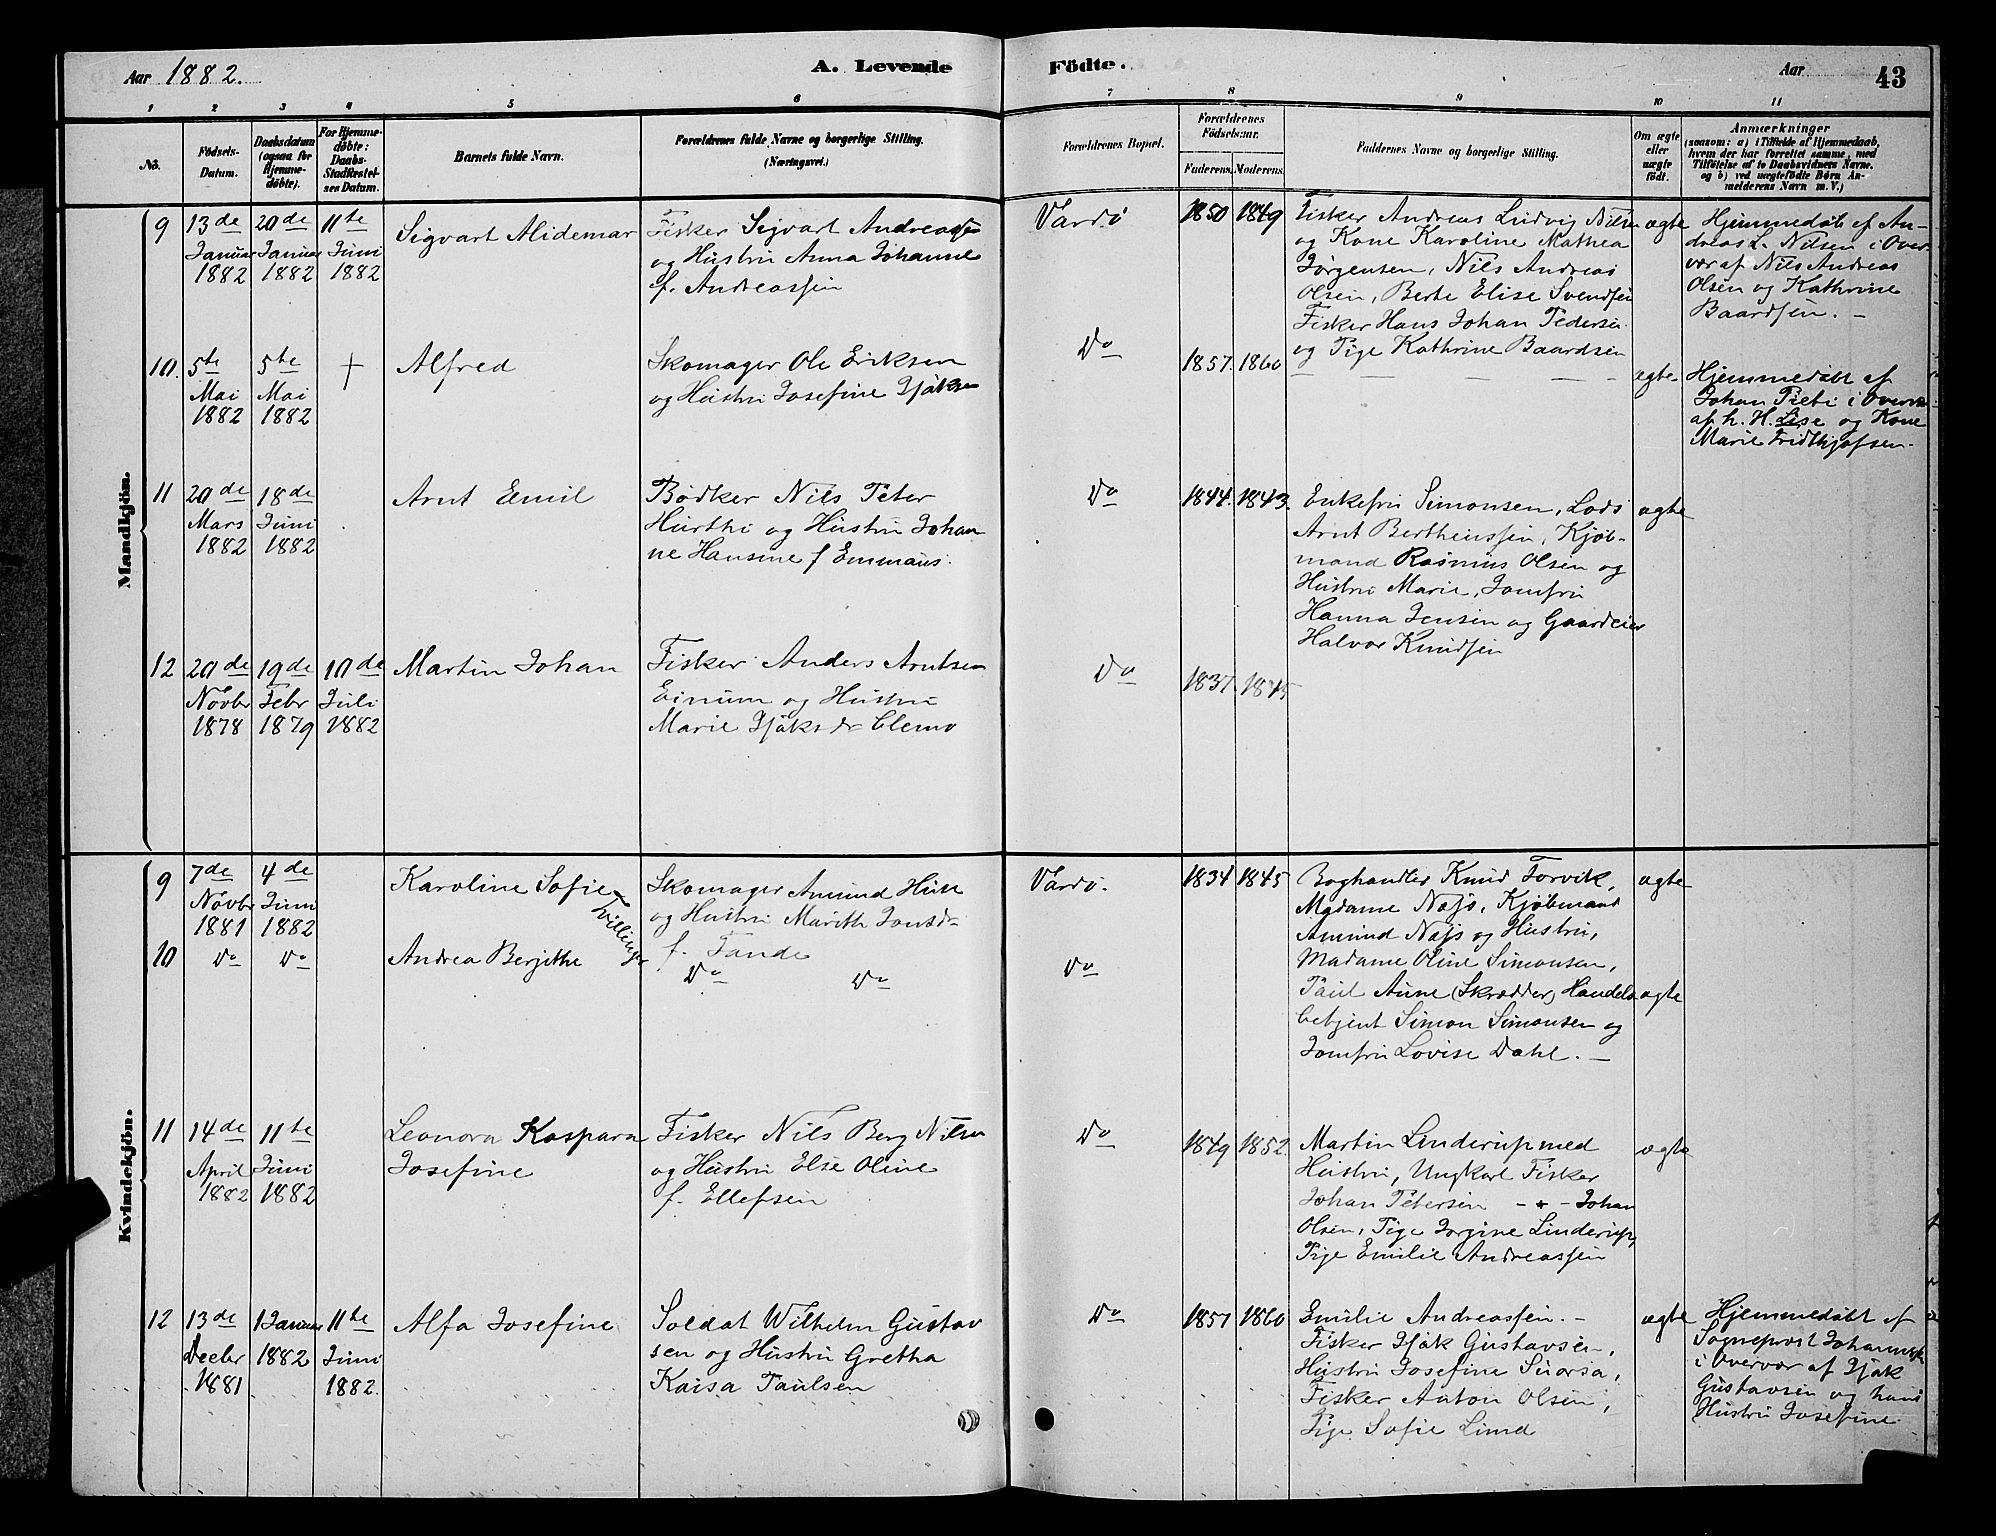 Aar 1882.
A. Levende Födte.
Aar 43
1 2 3 4 5 6 7 8 9 10 11
No. Födsels-Datum. Daabsdatum (ogsaa for Hjemmedöbte). For Hjemmedöbte: Daabs-Stadfæstelses Datum. Barnets fulde Navn. Forældrenes fulde Navne og borgerlige Stilling. (Næringsvei.)
Forældrenes Bopæl. Forældrenes Födselsaar. Faderens. Moderens. Faddernes Navne og borgerlige Stilling. Om ægte eller uægte födt. Anmærkninger (saasom: a) i Tilfælde af Hjemmedaab, hvem der har forrettet samme, med Tilföielse af to Daabsvidners Navne, og b) ved uægtefödte Börn Anmelderens Navn m. V.)
Mandkjön.
9 13de Januar 1882
20de Januar 1882
11te Juni 1882
Sigvart Alidemar
Fisker Sigvart Andreassen
og Hustru Anna Johanne
f. Andreassen
Vardö
1850 1849
Fisker Andreas Ludvig Nilsen
og Kone Karoline Mathea
Jörgensen, Nils Andreas
Olsen, Berte Elise Svendsen
Fisker Hans Johan Pedersen
og Pige Kathrine Baardsen
ægte
Hjemmedöbt af An-
dreas L. Nilsen i Over-
vær af Nils Andreas
Olsen og Kathrine
Baardsen. —
10. 5te Mai 1882
5te Mai 1882
+
Alfred
Skomager Ole Eriksen
og Hustru Josefine Isaksen
Do
1857. 1860
— — — — —
ægte
Hjemmedöbt af
Johan Pieti i Overvær
af h. H. Lise og Kone
Marie Fridthjofsen.
11 20de Mars 1882
18de Juni 1882
Arnt Emil
Bödker Nils Peter
Hurthi og Hustru Johan
ne Hansine f Emmaus.
Do
1844. 1843.
Enkefru Simonsen, Lods
Arnt Berthenssen, Kjöb-
mand Rasmus Olsen og
Hustru Marie, Jomfru
Hanna Jensen og Gaardeier
Halvor Knudsen
ægte
12 20de Novbr 1878
19de Febr 1879
10de Juli 1882
Martin Johan
Fisker Anders Arntsen
Einum og Hustru
Marie Isaksdr Clemo
Do
1837. 1845
Kvindekjön.
9 7de Novbr 1881
4de Juni 1882
Karoline Sofie
Tvillinger
Skomager Amund Huse
og Hustru Marith Jonsdr
f. Tande
Vardö.
1834 1845
Boghandler Knud Torvik,
Madame Næss, Kjöbmand
Amund Næss og Hustru,
Madame Oline Simonsen,
Paul Aune (Skrædder) Handels
betjent Simon Simonsen og
Jomfru Lovise Dahl. —
ægte
10 Do Do
Andrea Berjithe
Do Do
Do
ægte
11 14de April 1882
11te Juni 1882
Leonora Kaspara
Josefine
Fisker Nils Berg Nilsen
og Hustru Else Oline
f. Ellefsen
Do
1849 1852.
Martin Linderup med
Hustru, Ungkarl Fisker
Johan Petersen – + – Johan
Olsen, Pige Jorgine Linderup,
Pige Emilie Andreassen
ægte
12 13de Decbr 1881
1 Januar 1882
11te Juni 1882.
Alfa Josefine
Soldat Wilhelm Gustav
sen og Hustru Gretha
Kaisa Paulsen
Do
1857 1860
Emilie Andreassen. –
Fisker Isak Gustavsen,
Hustru Josefine Suorsa,
Fisker Anton Olsen,
Pige Sofie Lund
ægte
Hjemmedöbt af
Sognepræst
i Overvær af Isak
Gustavsen og hans
Hustru Josefine